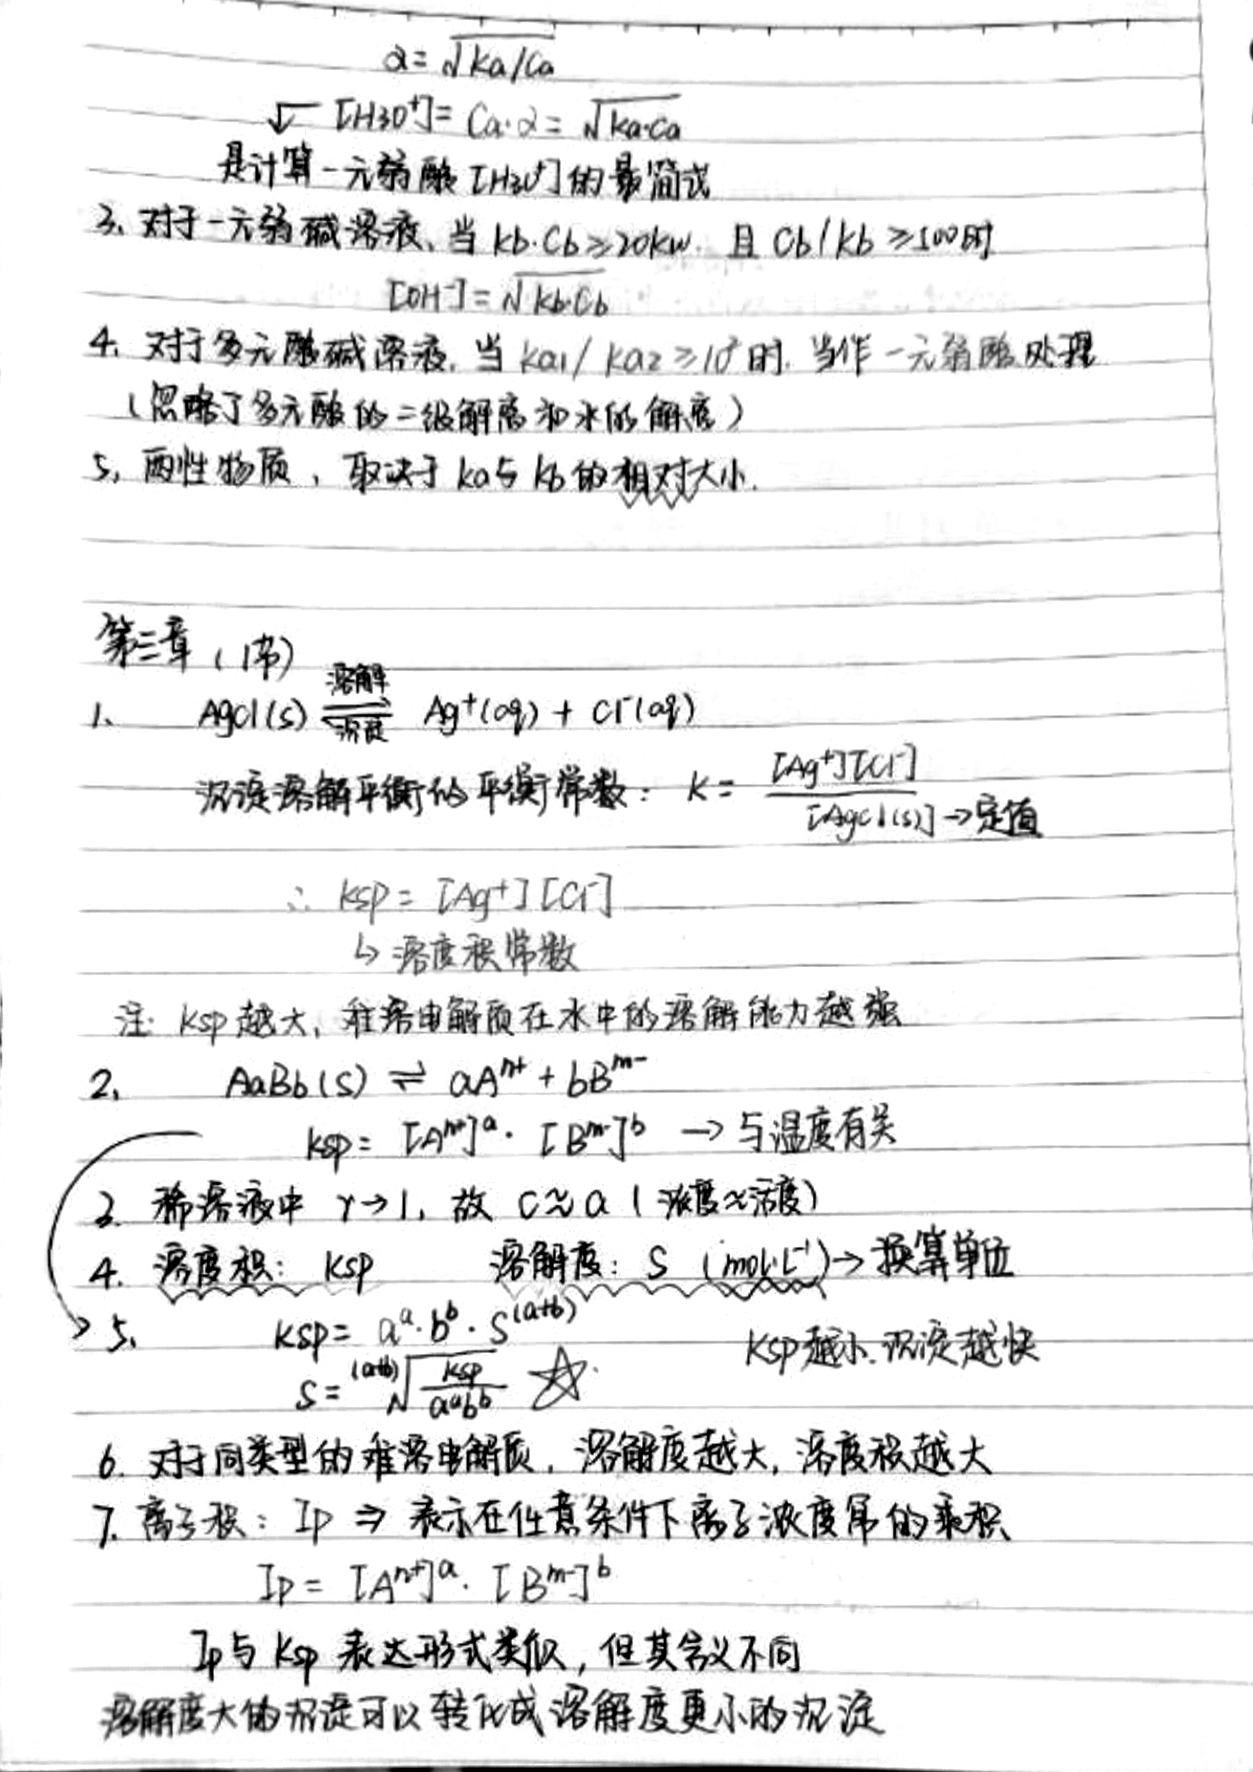 α = √Ka/Ca
√ [H3O⁺] = Ca·α = √Ka·Ca
是计算一元弱酸[H3O⁺]的最简式
3、对于一元弱碱溶液、当 Kb·Cb≥20Kw. 且 Cb/Kb ≥100时
[OH⁻] = √Kb·Cb
4、对于多元酸碱溶液, 当 Ka1/Ka2 ≥10² 时. 当作一元弱酸处理
(忽略了多元酸的二级解离和水的解离)
5、两性物质, 取决于 Ka与 Kb 的相对大小.
第三章 (1节)
溶解
1、 AgCl(s) ⇌ Ag⁺(aq) + Cl⁻(aq)
沉淀
沉淀溶解平衡的平衡常数: K = [Ag⁺][Cl⁻] / [AgCl(s)] →定值
∴ Ksp = [Ag⁺][Cl⁻]
↳ 溶度积常数
注: Ksp 越大, 难溶电解质在水中的溶解能力越强
2、 AaBb(s) ⇌ aAⁿ⁺ + bBᵐ⁻
Ksp = [Aⁿ⁺]ᵃ · [Bᵐ⁻]ᵇ → 与温度有关
3. 稀溶液中 γ→1, 故 c≈a (浓度≈活度)
4. 溶度积: Ksp 溶解度: S (mol·L⁻¹)→换算单位
5. Ksp = aᵃ·bᵇ·S⁽ᵃ⁺ᵇ⁾
Ksp越小.沉淀越快
S = ⁽ᵃ⁺ᵇ⁾√Ksp/aᵃbᵇ ☆
6. 对于同类型的难溶电解质, 溶解度越大, 溶度积越大
7. 离子积: Ip ⇒ 表示在任意条件下离子浓度幂的乘积
Ip = [Aⁿ⁺]ᵃ · [Bᵐ⁻]ᵇ
Ip与 Ksp 表达形式类似, 但其含义不同
溶解度大的沉淀可以转化成溶解度更小的沉淀